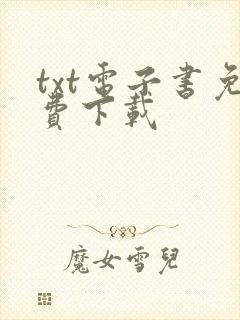 txt電子書免
費下載
魔女雪兒